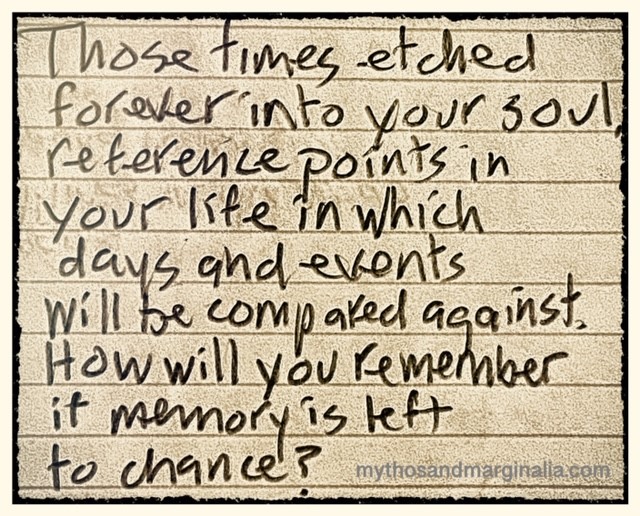 Those times etched
forever into your soul,
reference points in
your life in which
days and events
will be compared against.
How will you remember
if memory is left
to chance?
mythosandmarginalia.com